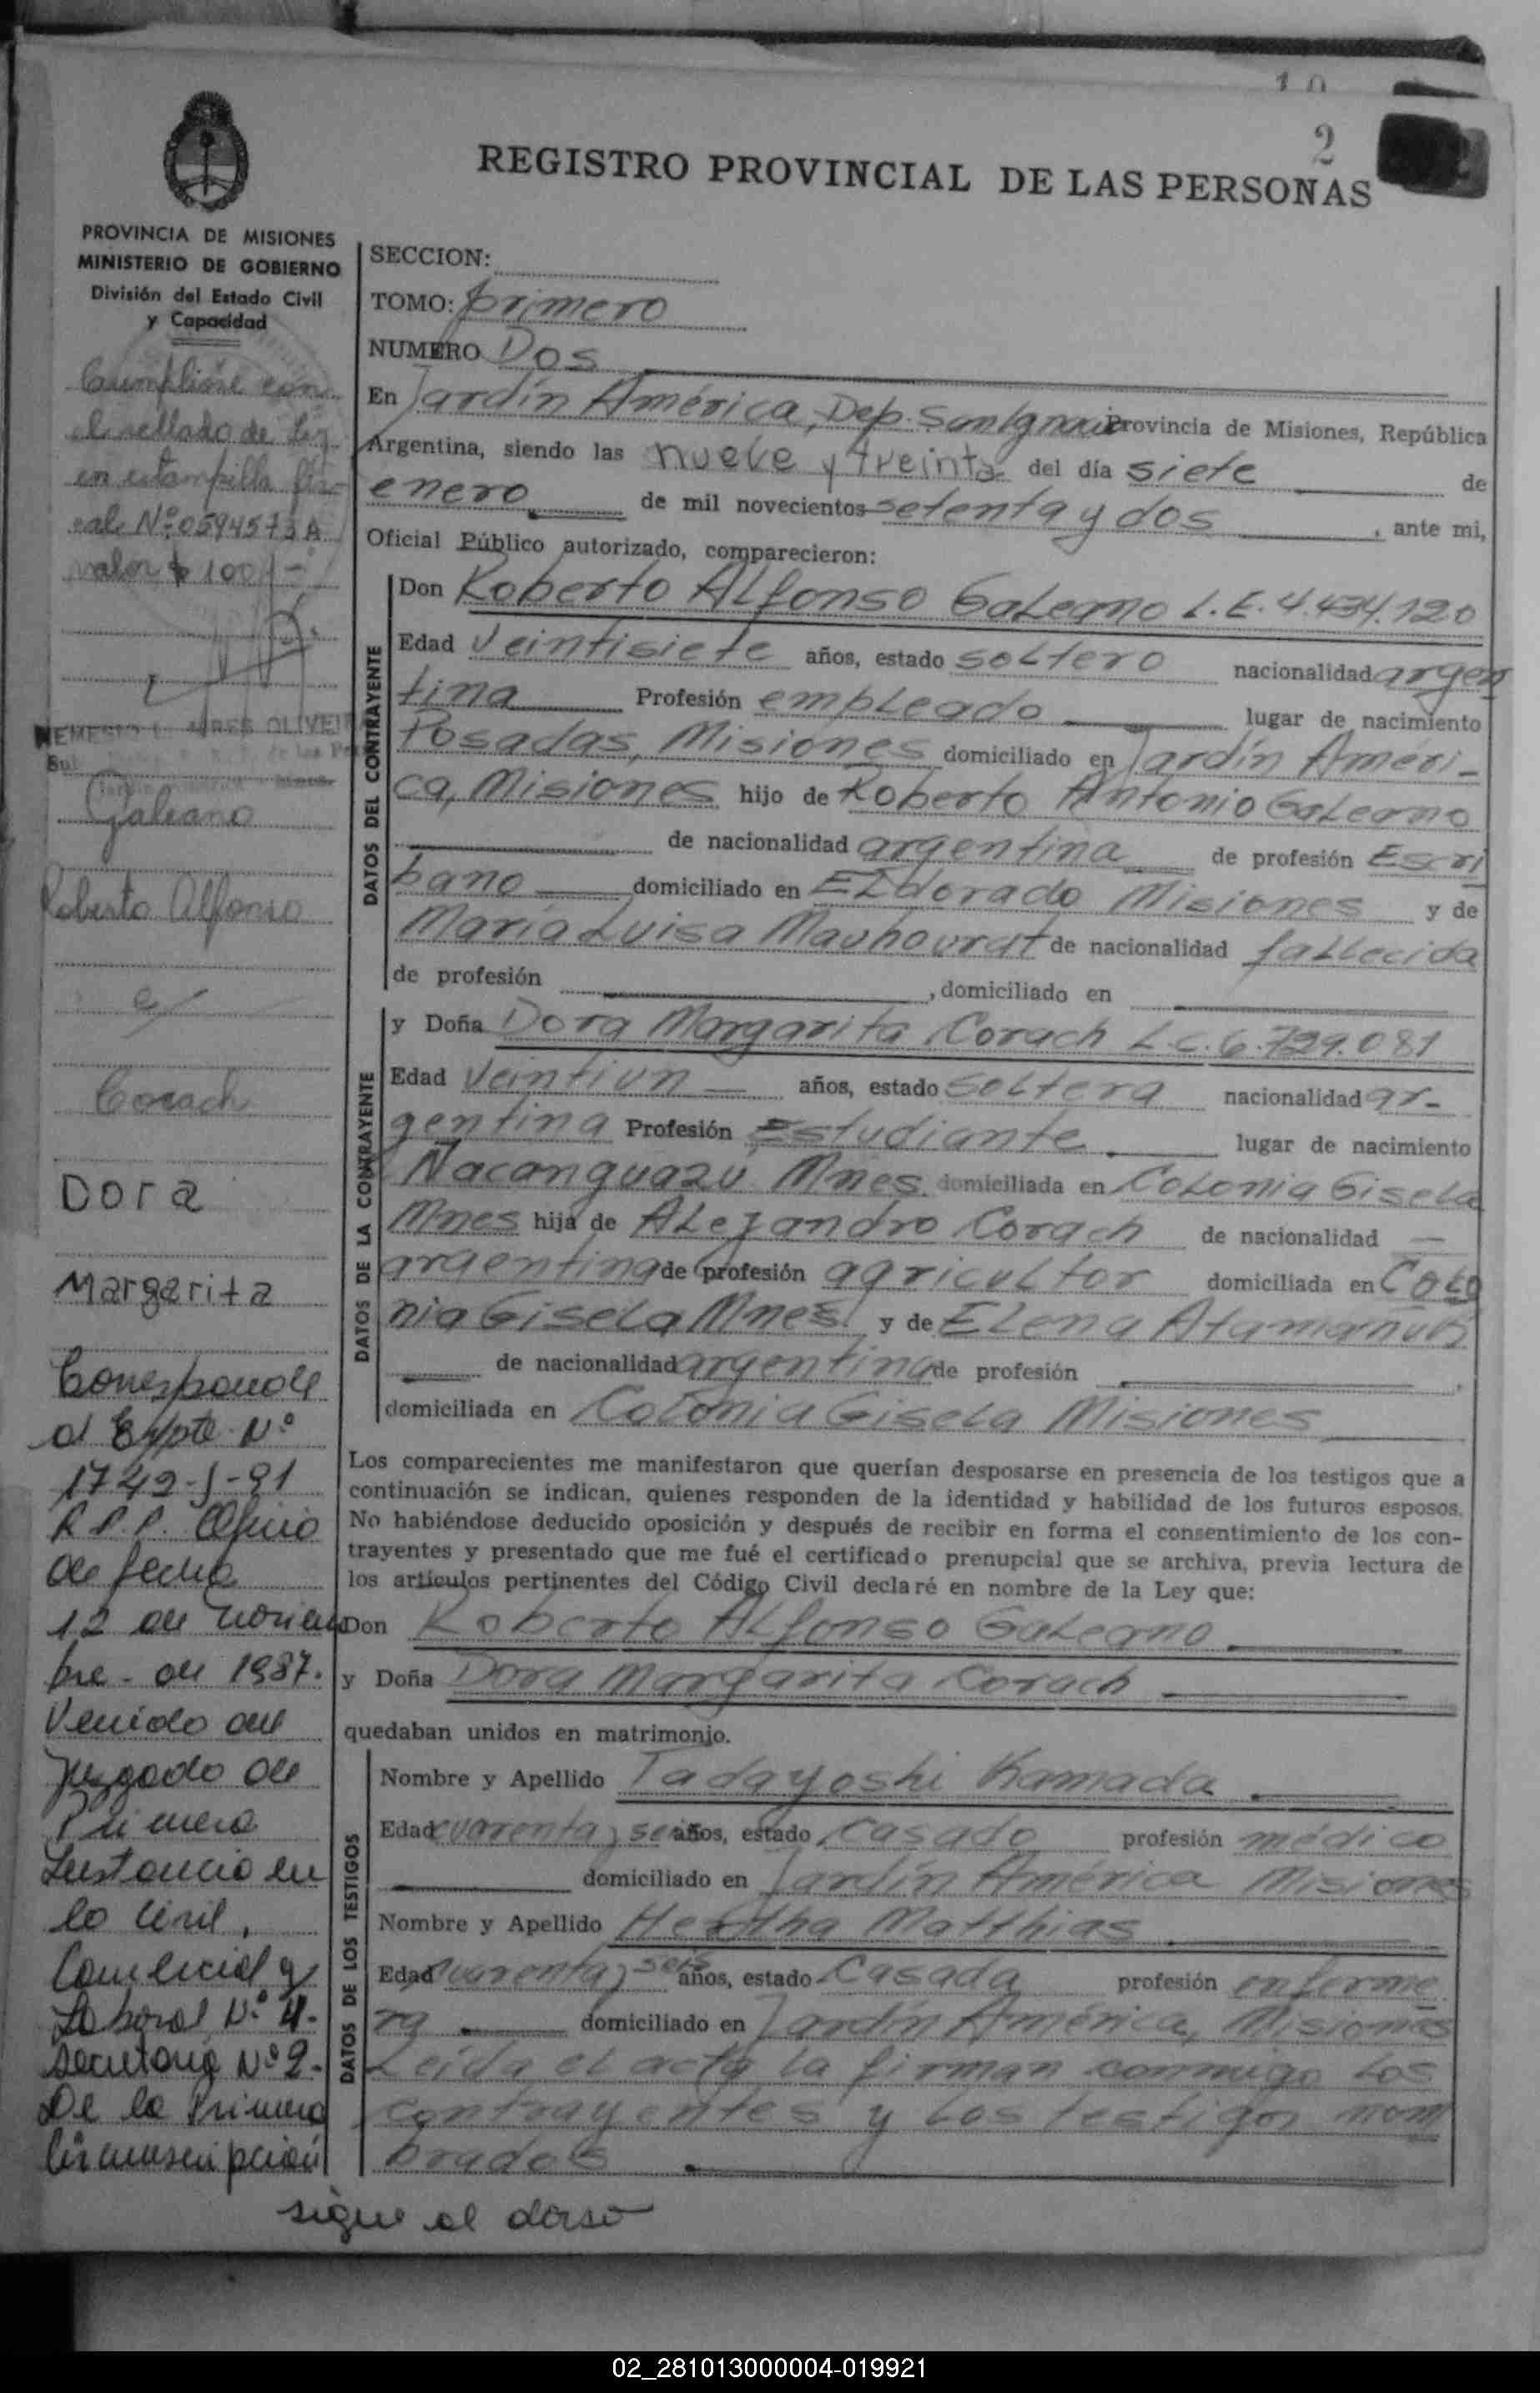 10
2
REGISTRO PROVINCIAL DE LAS PERSONAS
PROVINCIA DE MISIONES
MINISTERIO DE GOBIERNO
División del Estado Civil
y Capacidad
Cumplióse con
el sellado de ley
en estampilla fis-
cal Nº 0594573A
valor $ 100
NEMESIO OLIVEI
Galeano
Roberto Alfonso
c/
Corach
Dora
Margarita
Corresponde
al Expte. Nº
1749-J-91
R.P.P. Oficio
de fecha
12 de noviem
bre - de 1987.
Venido del
Juzgado de
Primera
Instancia en
lo Civil,
Comercial y
Laboral Nº 4-
Secretaría Nº 2-
De la Primera
Circunscripción
sigue al dorso
SECCION:
TOMO: primero
NUMERO Dos
En Jardín América, Dep. San Ignacio Provincia de Misiones, República
Argentina, siendo las nueve y treinta del día siete de
enero de mil novecientos setenta y dos, ante mi,
Oficial Público autorizado, comparecieron:
DATOS DEL CONTRAYENTE
Don Roberto Alfonso Galeano L.E. 4.434.120
Edad Veintisiete años, estado soltero nacionalidad argen
tina Profesión empleado lugar de nacimiento
Posadas, Misiones domiciliado en Jardín Améri-
ca, Misiones hijo de Roberto Antonio Galeano
de nacionalidad argentina de profesión Escri
bano domiciliado en Eldorado Misiones y de
María Luisa Mauhourat de nacionalidad fallecida
de profesión , domiciliado en
DATOS DE LA CONTRAYENTE
y Doña Dora Margarita Corach L.C. 6.729.081
Edad Veintiun años, estado soltera nacionalidad ar-
gentina Profesión Estudiante lugar de nacimiento
Ñacanguazu Mnes. domiciliada en Colonia Gisela
Mnes hija de Alejandro Corach de nacionalidad
argentina de profesión agricultor domiciliada en Colo
nia Gisela Mnes y de Elena Atamañuk
de nacionalidad argentina de profesión
domiciliada en Colonia Gisela Misiones
Los comparecientes me manifestaron que querían desposarse en presencia de los testigos que a
continuación se indican, quienes responden de la identidad y habilidad de los futuros esposos.
No habiéndose deducido oposición y después de recibir en forma el consentimiento de los con-
trayentes y presentado que me fué el certificado prenupcial que se archiva, previa lectura de
los artículos pertinentes del Código Civil declaré en nombre de la Ley que:
Don Roberto Alfonso Galeano
y Doña Dora Margarita Corach
quedaban unidos en matrimonio.
DATOS DE LOS TESTIGOS
Nombre y Apellido Tadayoshi Kamada
Edad cuarenta y seis años, estado casado profesión médico
domiciliado en Jardín América Misiones
Nombre y Apellido Hertha Matthias
Edad cuarenta y seis años, estado casada profesión enferme
ra domiciliado en Jardín América, Misiones
Leída el acta la firman conmigo los
contrayentes y los testigos nom
brados
02_281013000004-019921